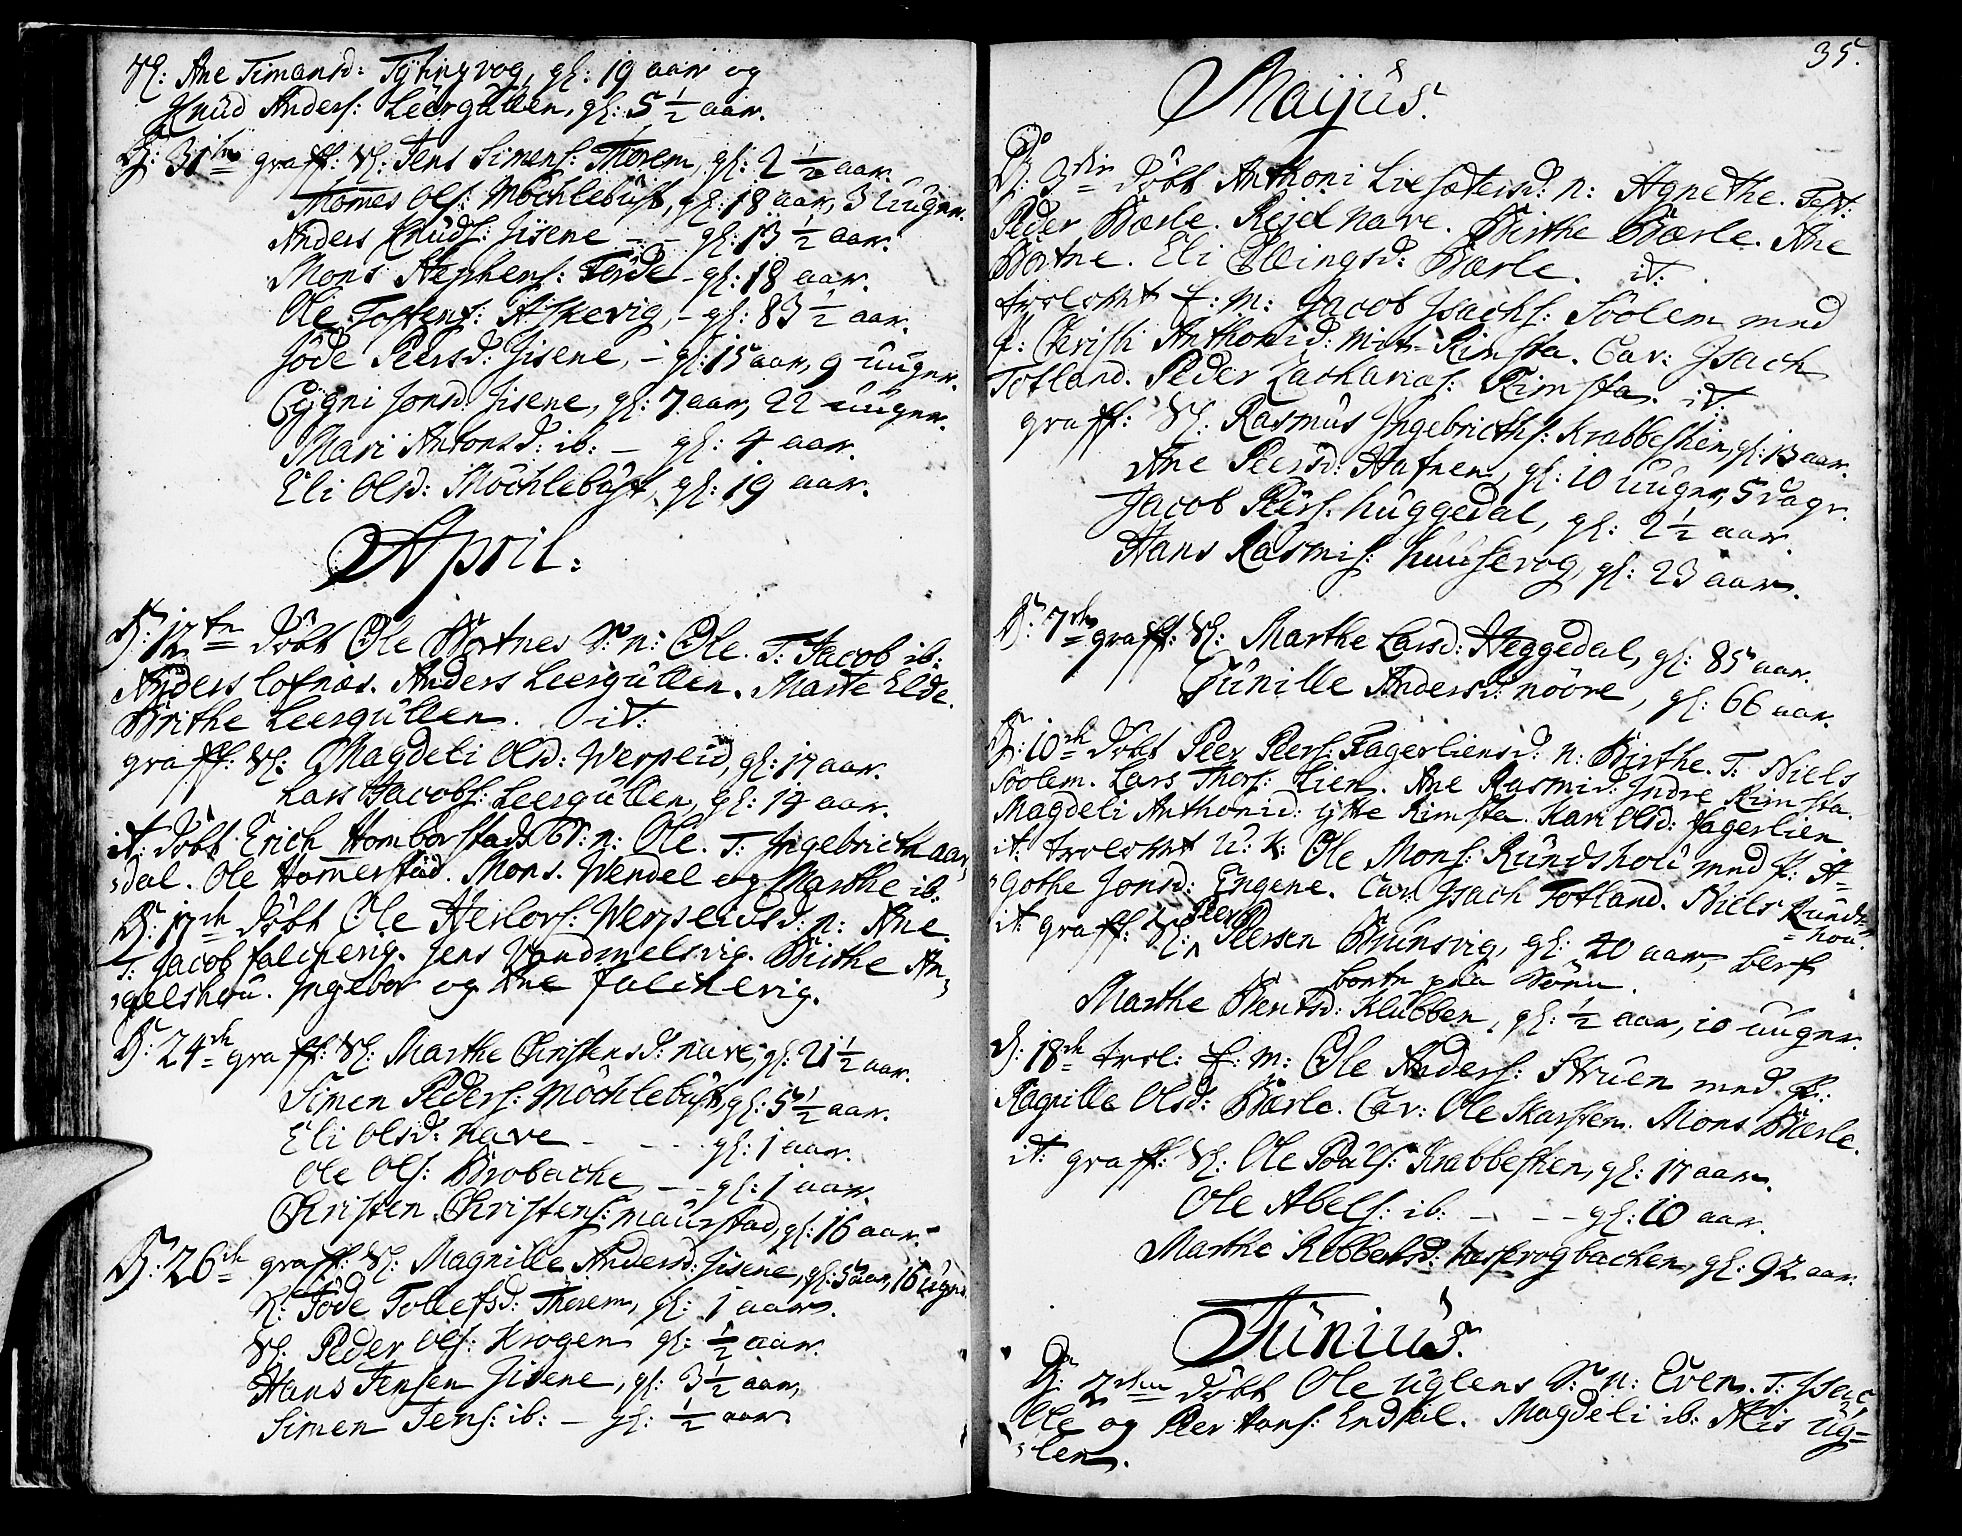 Sl: Ane Simonsd: Tytingvog, gl: 19 aar og
Knud Anders: Leergullen, gl: 5 1/2 aar.
D: 31te graff: Sl: Jens Simens: Thorem, gl: 2 1/2 aar.
Thomes Ols: Möchlebust, gl: 18 aar, 3 uuger.
Anders Knuds: Jisene - - gl: 13 1/2 aar.
Mons Stephens: Förde - gl: 18 aar.
Ole Tostens: Askevig, - gl: 83 1/2 aar.
Jöde Peersd: Jisene, - gl: 15 aar, 9 uuger.
Sÿgni Jonsd: Jisene, gl: 7 aar, 22 uuger.
Mari Antonsd: ib: - gl: 4 aar.
Eli Olsd: Möchlebust, gl: 19 aar.
April:
D: 12te döbt Ole Bortnes S: n: Ole. T: Jacob ib:
Anders Lofnæs. Anders Leergullen. Marte Elde.
Birthe Leergullen. it:
graff: Sl: Magdeli Olsd: Werpeid, gl: 17 aar.
Lars Jacobs: Leergullen, gl: 14 aar.
it: döbt Erich Homborstads S: n: Ole. T: Ingebricht aar,
,dal. Ole Homerstad. Mons. Wendel og Marthe ib:
D: 17de döbt Ole Herlors: Werpeids d: n: Ane.
T: Jacob falcheng. Jens Vandmelsvig. Birthe An,
,gelshou. Ingebor og Ane falchevig.
D: 24de graff: Sl: Marthe Christensd: nave, gl: 21 1/2 aar.
Simen Peders: Möchlebust, gl: 5 1/2 aar.
Eli Olsd: Nave - - - gl: 1 aar.
Ole Ols: Brobache - - gl: 1 aar.
Christen Christens: maurstad, gl: 16 aar.
D: 26de graff: Sl: Magnille Andersd: Jisene, gl: 5 aar, 16 ugr.
K: Jöde Tollefsd: Thorem, gl: 1 aar.
Sl: Peder Ols: Krogen gl: 1/2 aar.
Hans Jensen Jisene, gl: 3 1/2 aar,
Simen Jens: ib: - gl: 1/2 aar
35.
Maijus.
D: 3die döbt Anthoni Liesætersd: n: Agnethe. Test:
Peder Bærle. Rejel Nave. Birthe Bærle. Ane
Bortne. Eli Ellingsd: Bærle. it:
trolofvt E: M: Jacob Isachs: Söolem med
P: Christi Anthonid: mit-Rimsta. Cav: Isach
Totland. Peder Zacharias: Rimsta. it:
graff: Sl: Rasmus Ingebrichts: Krabbeskien, gl: 13 aar.
Ane Peersd: Hafnen, gl: 10 uuger, 5 dage.
Jacob Peers: huggedal, gl: 2 1/2 aar.
Hans Rasmis: huusevog, gl: 23 aar.
D: 7de graff: Sl: Marthe Larsd: Heggedal, gl: 85 aar.
Gunille Andersd: nööre, gl: 66 aar.
D: 10de döbt Peer Peers: Fagerliensd: n: Birthe. T: Niels
Soolem. Lars Thors: Lien. Ane Rasmisd: Indre Rimsta.
Magdeli Anthonid: ytte Rimsta. Kari Olsd: Fagerlien.
it: trolofvt U: K: Ole Mons: Rundshou med P: A=
,gothe Jonsd: Engene. Cav: Isach Totland. Niels Runds=
=hou.
it: graff: Sl: Peer Peersen Brunsvig, gl: 40 aar, blef
borte paa Söen.
Marthe Bentsd: Klubben, gl: 1/2 aar, 10 uuger.
D: 18de trol: E: M: Ole Anders: Struen med P:
Ragnille Olsd: Bærle. Cav: Ole Skarsten. Mons Bærle.
it: graff: Sl: Ole Pouls: Krabbestien, gl: 17 aar.
Ole Abels: ib: - - - gl: 10 aar.
Marthe Rebbersd: husevogbachen, gl: 92 aar.
Junius.
D: 2den döbt Ole Uglens S: n: Even. T: Isac,
Ole og Peer Hans: Endsiil. Magdeli ib: Alis Ug=
,len.